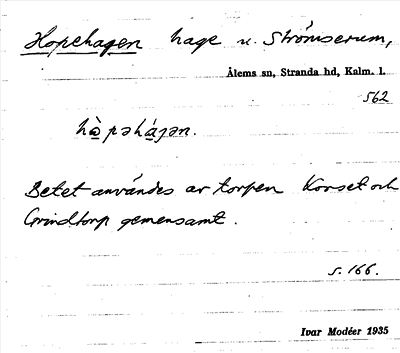 Hopehagen hage u. Strömserum,
Ålems sn, Stranda hd, Kalm. l.
562
hàpəhájən.
Betet användes av torpen Korset och
Grindtorp gemensamt.
s. 166.
Ivar Modéer 1935